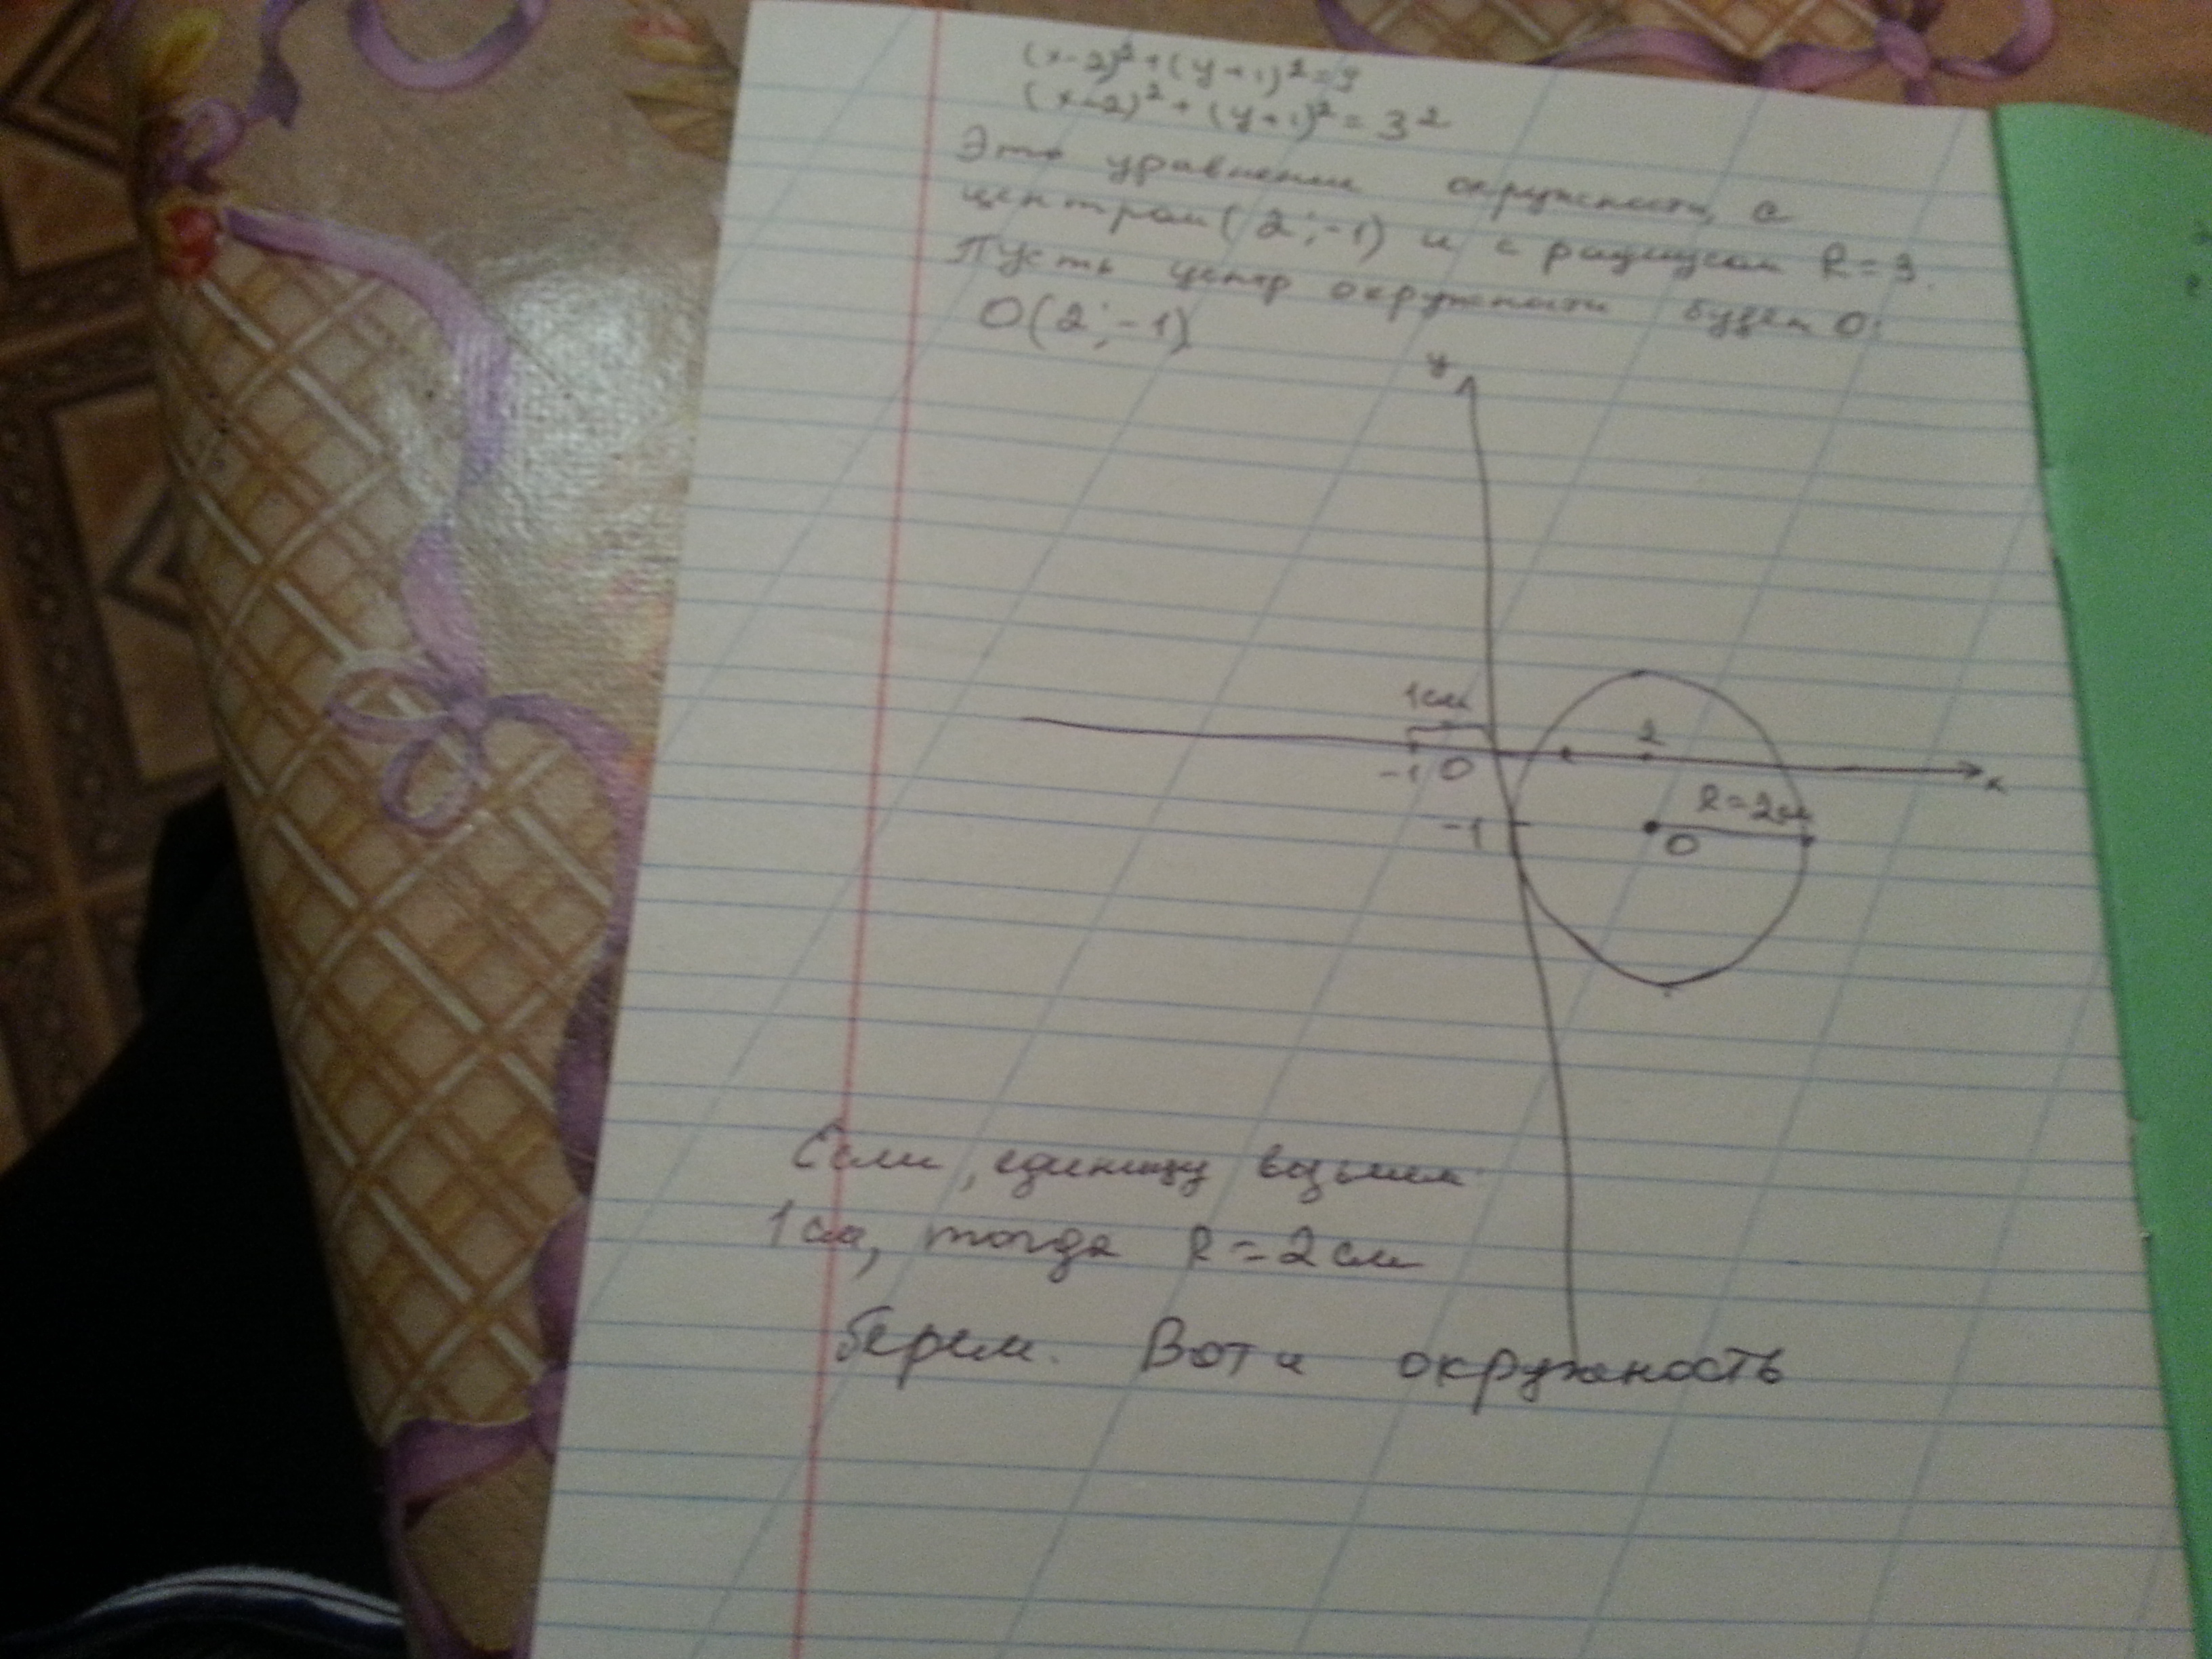 (x-2)² + (y+1)² = 9
(x-2)² + (y+1)² = 3²
Это уравнение окружности, с
центром (2;-1) и с радиусом R=3.
Пусть центр окружности будет O:
O(2;-1)
y
1см
2
-1 0
x
R=2см
-1
O
Если, единицу возьмем
1см, тогда R=2см
берем. Вот и окружность